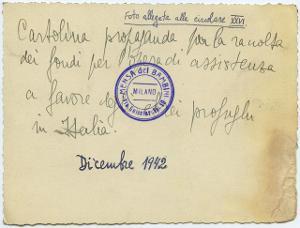 Foto allegata alla circolare XXVI
Cartolina propaganda per la raccolta
dei fondi per l'Opera di assistenza
a favore degli ebrei profughi
in Italia.
MENSA dei BAMBINI
MILANO
Dicembre 1942